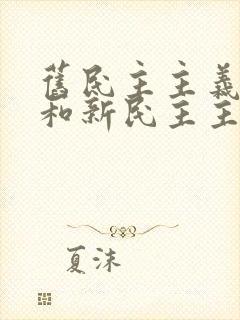 舊民主主義
和新民主主
夏沫